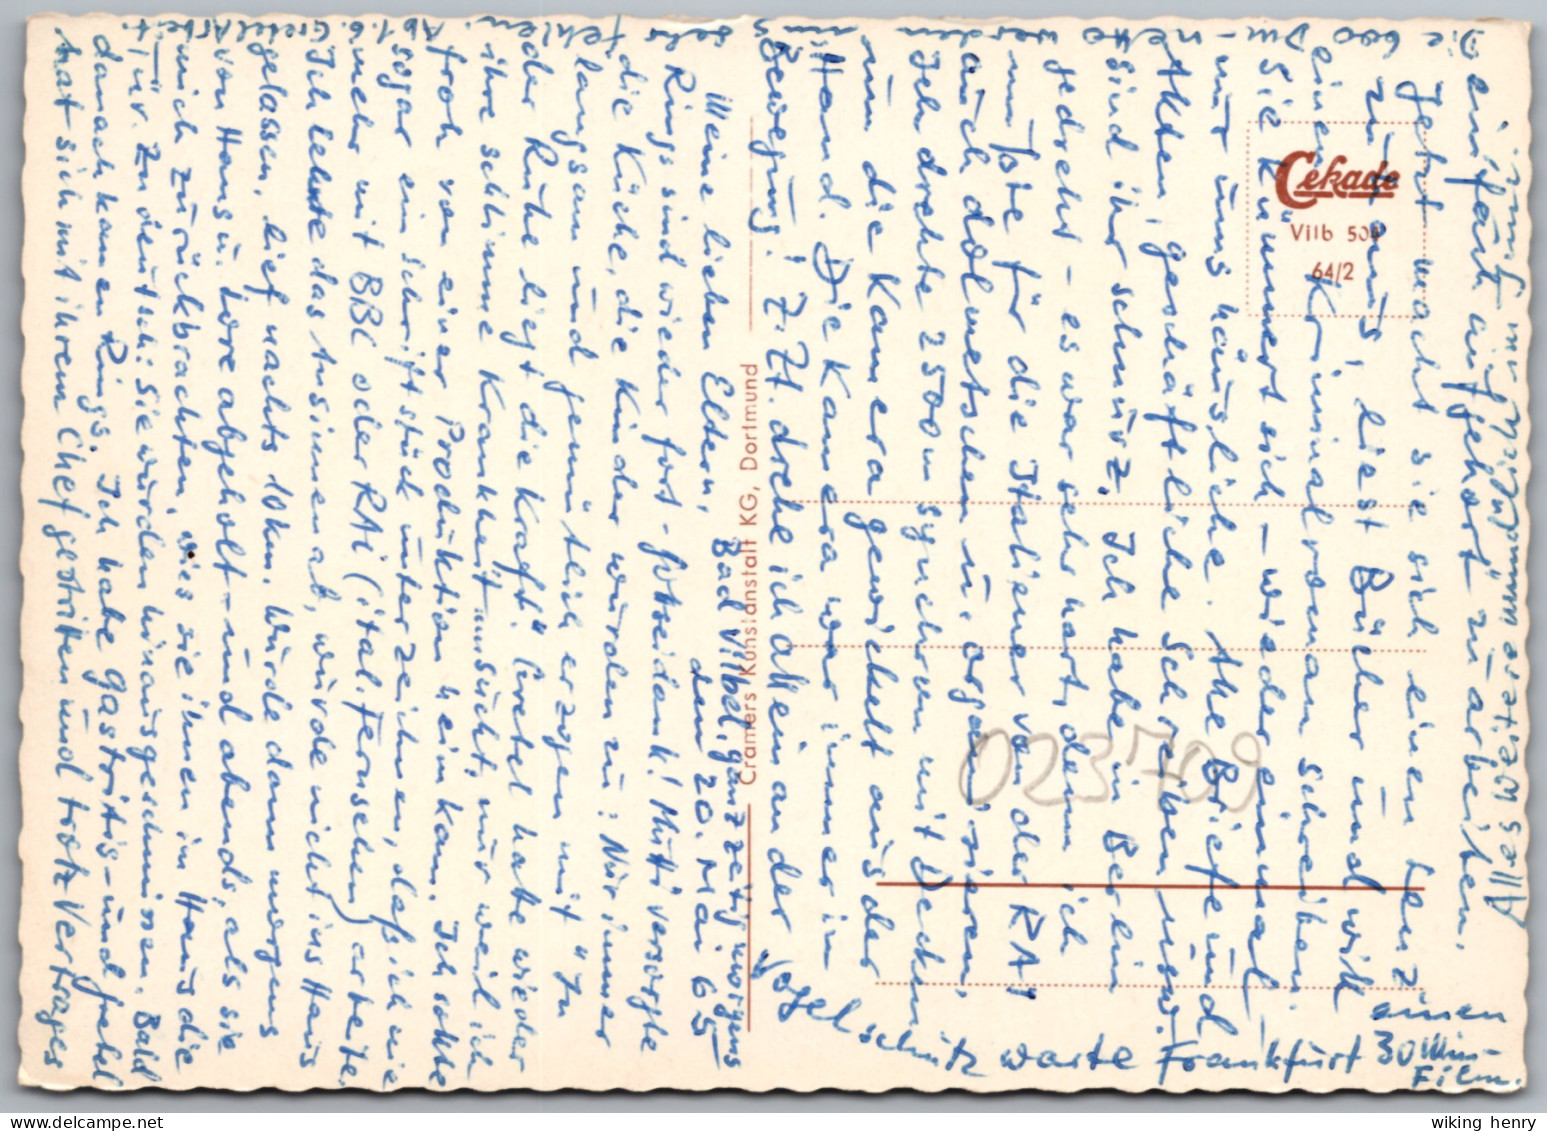 Bad Vilbel, ganz zeitig morgens
den 20. Mai 65
Meine lieben Eltern,
Rings sind wieder fort - gottseidank! Mutti versorgte
die Küche, die Kinder wurden zu: Nur immer
langsam und gemütlich erzogen mit "In
der Ruhe liegt die Kraft". Gretel hatte wieder
ihre schlimme Krankheit
froh von einer Produktion heimkam. Ich sollte
sogar ein Schriftstück unterzeichnen, daß ich nie
mehr mit BBC oder RAI (ital. Fernsehen) arbeite.
Ich lehnte das Ansinnen ab, wurde nicht ins Haus
gelassen, lief nachts 10 km. Wurde dann morgens
von Hans u. Lore abgeholt - und abends, als sie
mich zurückbrachten, wies sie ihnen im Haus die
Tür. Zu deutsch: Sie wurden hinausgeschmissen. Bald
danach kamen Rings. Ich habe Gastritis - und Gretel
hat sich mit ihrem Chef gestritten und trotz Vertrages
einfach aufgehört zu arbeiten.
Jetzt macht sie sich einen Lenz
zu Haus, liest Bücher und will
einen Kriminalroman schreiben.
Sie kümmert sich - wieder einmal -
nur ums häusliche. Alle Briefe und
Akten, geschäftliche Schreiben usw.
sind ihr schnurz. Ich habe in Berlin
gedreht - es war sehr hart, denn ich
mußte für die Italiener von der RAI
auch dolmetschen u. organisieren.
Ich drehte 2500 m synchron mit Decken
um die Kamera gewickelt aus der
Hand. Die Kamera war immer in
Bewegung! Z. Zt. drehe ich allein an der
Vogelschutzwarte Frankfurt
einen
30 Min-
Film.
Alles Weitere mündlich
Ab 1.6. Gretel Arbeit
Die 600 DM netto werden uns sehr fehlen.
Cekade
Vilb 504
64/2
Cramers Kunstanstalt KG, Dortmund
023709
wiking henry